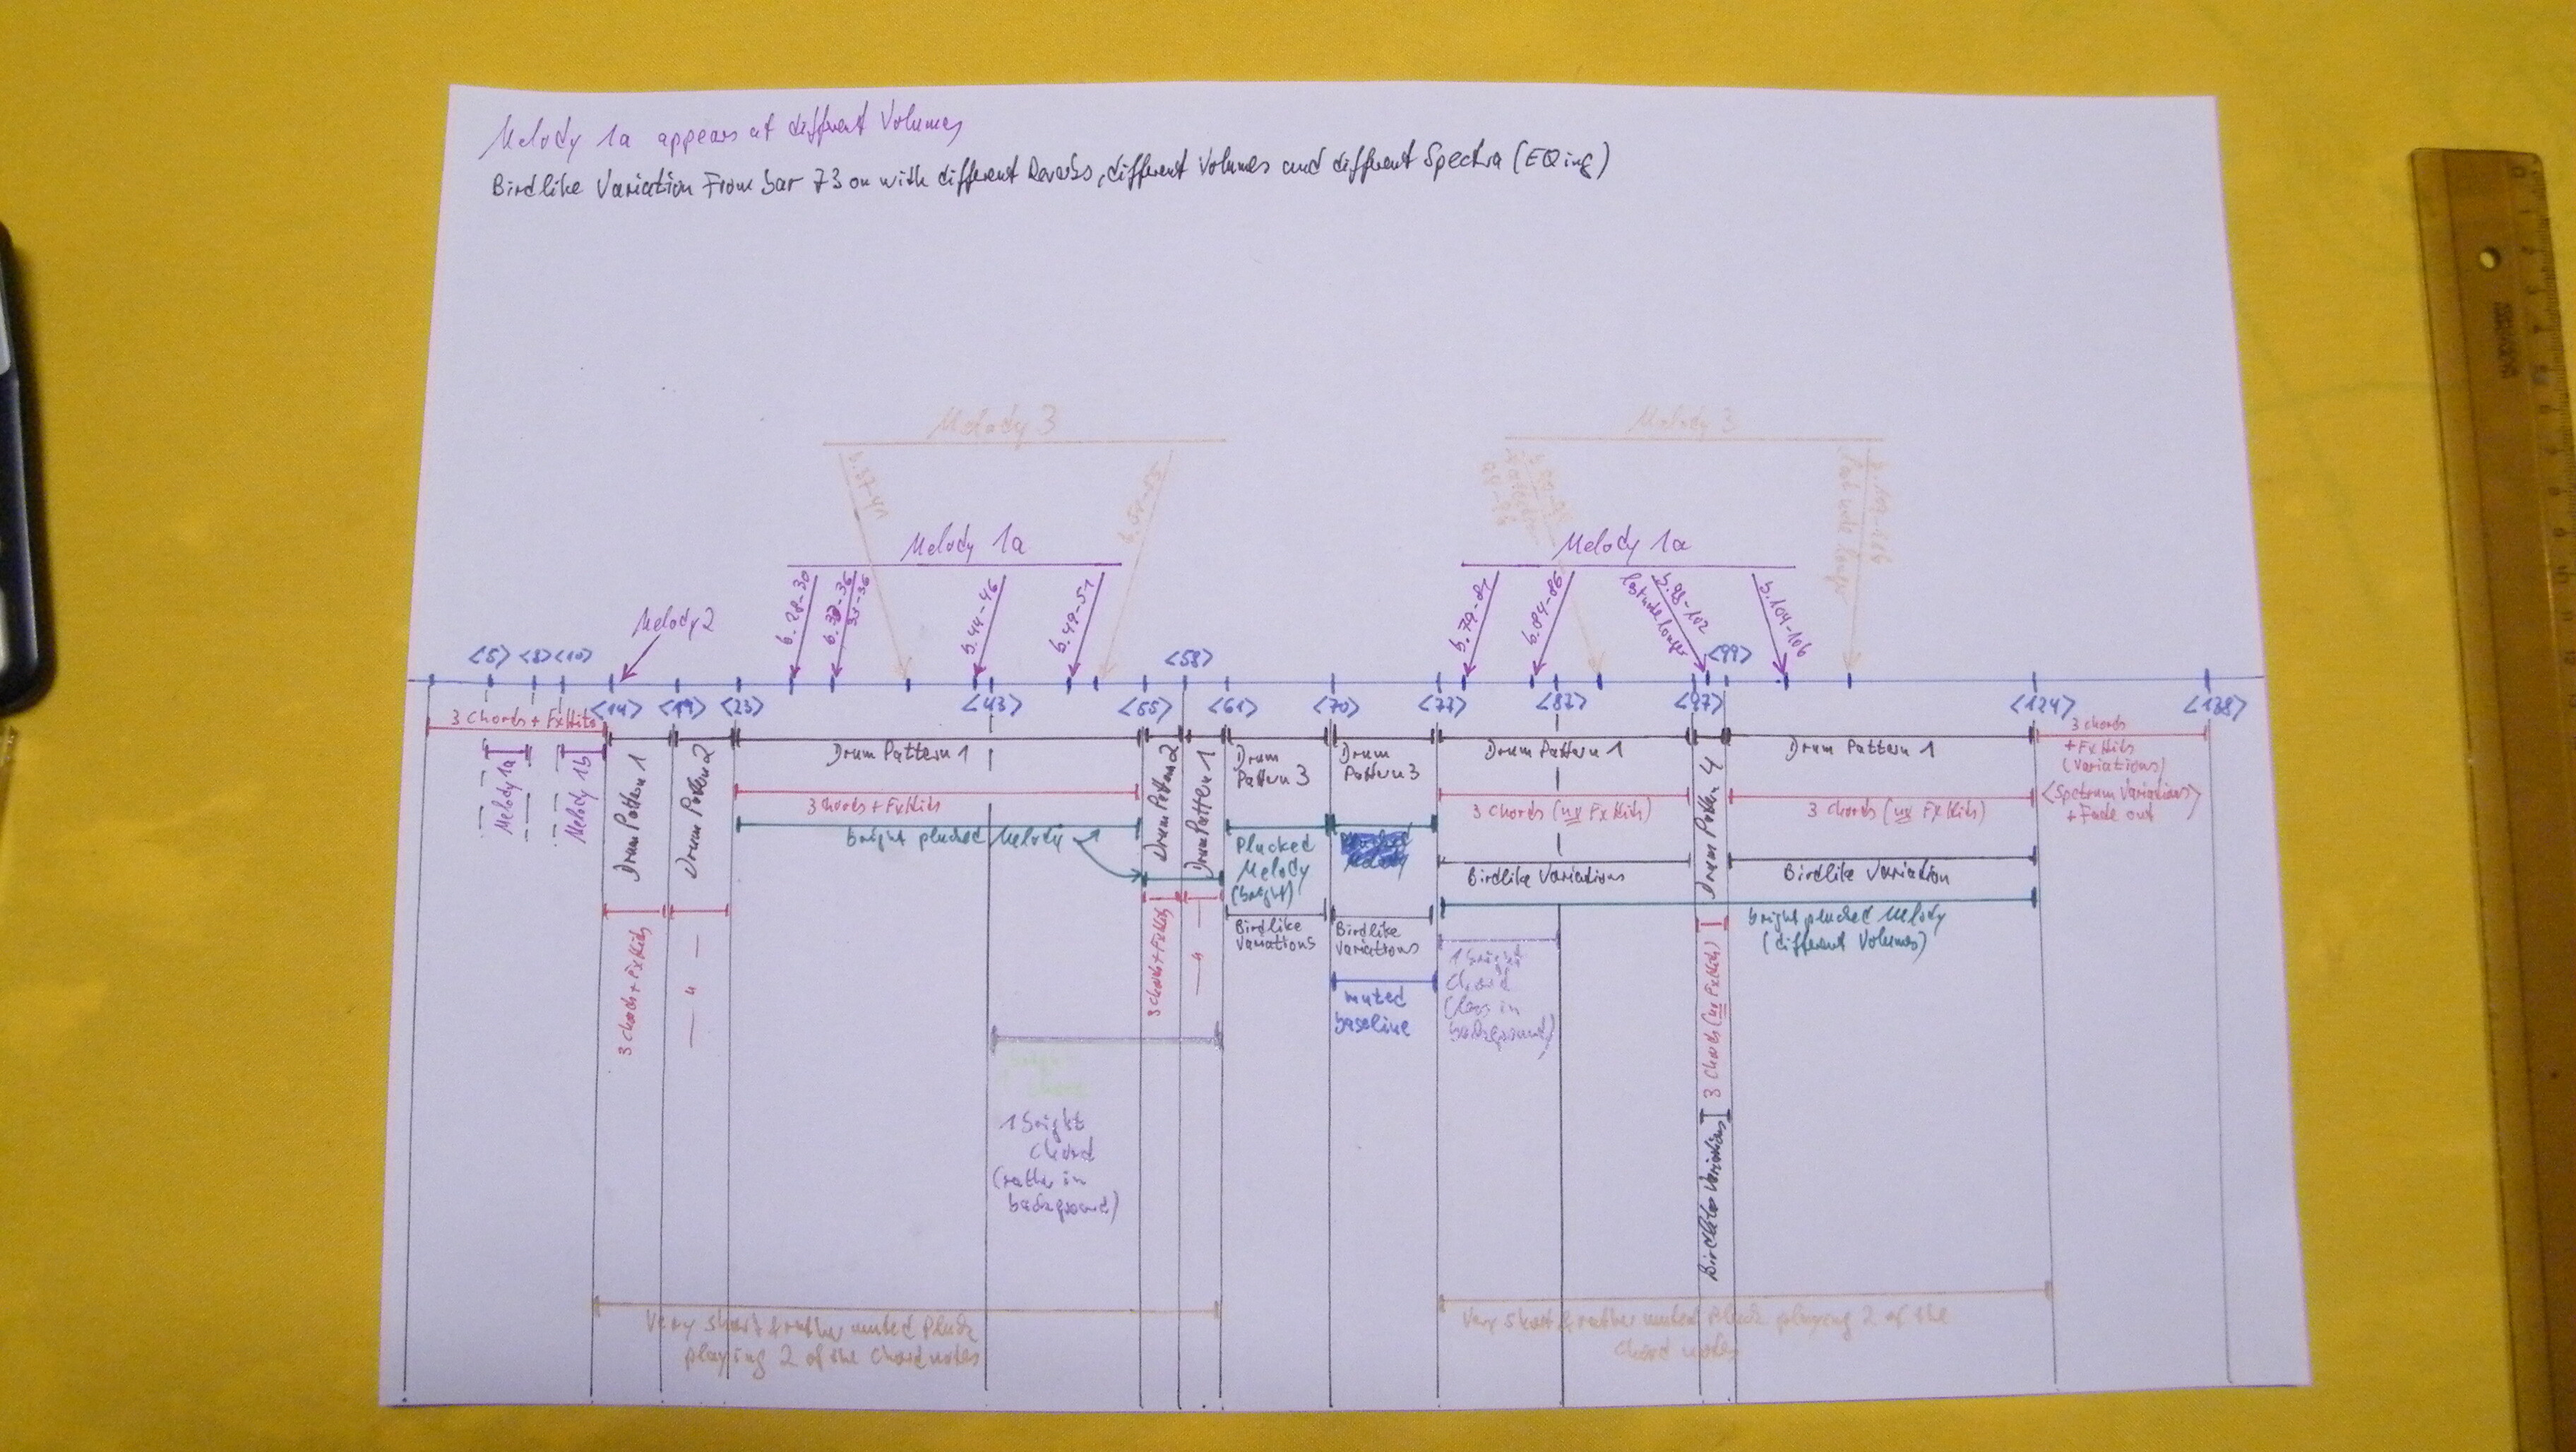 Melody 1a appears at different Volumes
Birdlike Variation From bar 73 on with different Reverbs, different Volumes and different Spectra (EQing)
Melody 3
Melody 3
b.37-41
Melody 1a
Melody 1a
b.28-30
33-36
b.44-46
b.49-51
b.79-81
b.84-86
b.98-102
last note longer
b.104-106
Melody 2
<5> <8> <10>
<58>
<99>
<14> <19> <23> <43> <55> <61> <70> <73> <82> <97> <124> <138>
3 Chords + FxHits
Melody 1a
Melody 1b
Drum Pattern 1
Drum Pattern 2
Drum Pattern 1
Drum Pattern 2
Drum Pattern 1
Drum
Pattern 3
Drum
Pattern 3
Drum Pattern 1
Drum Pattern 4
Drum Pattern 1
3 chords
+ FxHits
(Variations)
<Spectrum Variations>
+ Fade out
3 Chords + FxHits
bright plucked Melody
Plucked
Melody
(bright)
3 Chords (no FxHits)
3 Chords (no FxHits)
Birdlike Variations
Birdlike Variation
Birdlike
Variations
Birdlike
Variations
bright plucked Melody
(different Volumes)
3 Chords + FxHits
— " —
3 Chords + FxHits
— " —
muted
baseline
1 bright
Chord
(Class in
background)
3 Chords (no FxHits)
Birdlike Variations
1 bright
Chord
(rather in
background)
Very short & rather muted Pluck
playing 2 of the Chord notes
Very short & rather muted Pluck playing 2 of the
Chord notes